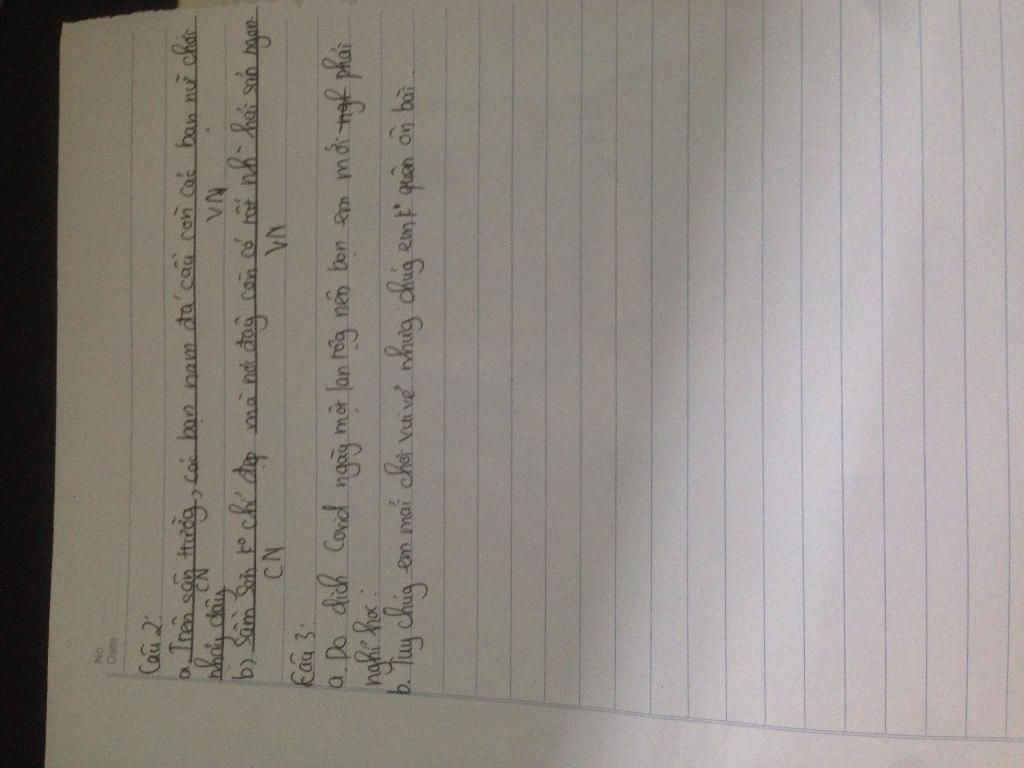 No.
Date
Câu 2:
a. Trên sân trường, các bạn nam đá cầu còn các bạn nữ chơi
CN VN
nhảy dây
b, Sầm Sơn k° chỉ đẹp mà nơi đây còn có rất nh~ hải sản ngon
CN VN
Câu 3:
a. Do dịch Covid ngày một lan rộg nên bọn em mới phải
nghỉ học.
b. Tuy chúg em mải chơi vui vẻ nhưng chúg em k° quên ôn bài.